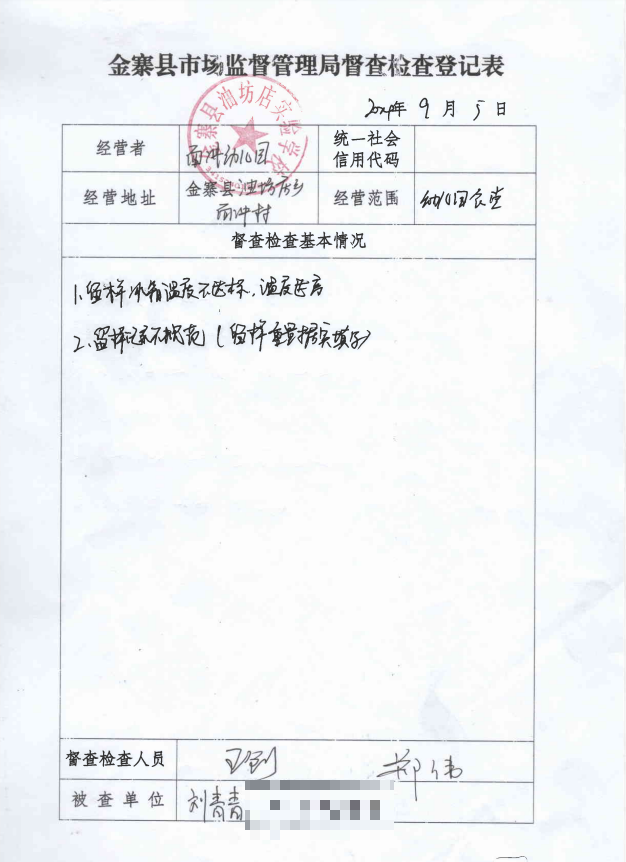 金寨县市场监督管理局督查检查登记表
金寨县油坊店实验学校
2024年 9 月 5 日
经营者 面冲幼儿园 统一社会信用代码
经营地址 金寨县油坊店乡面冲村 经营范围 幼儿园食堂
督查检查基本情况
1.留样冰箱温度不达标,温度过高
2.留样记录不规范(留样重量据实填写)
督查检查人员 郑伟
被查单位 刘青青